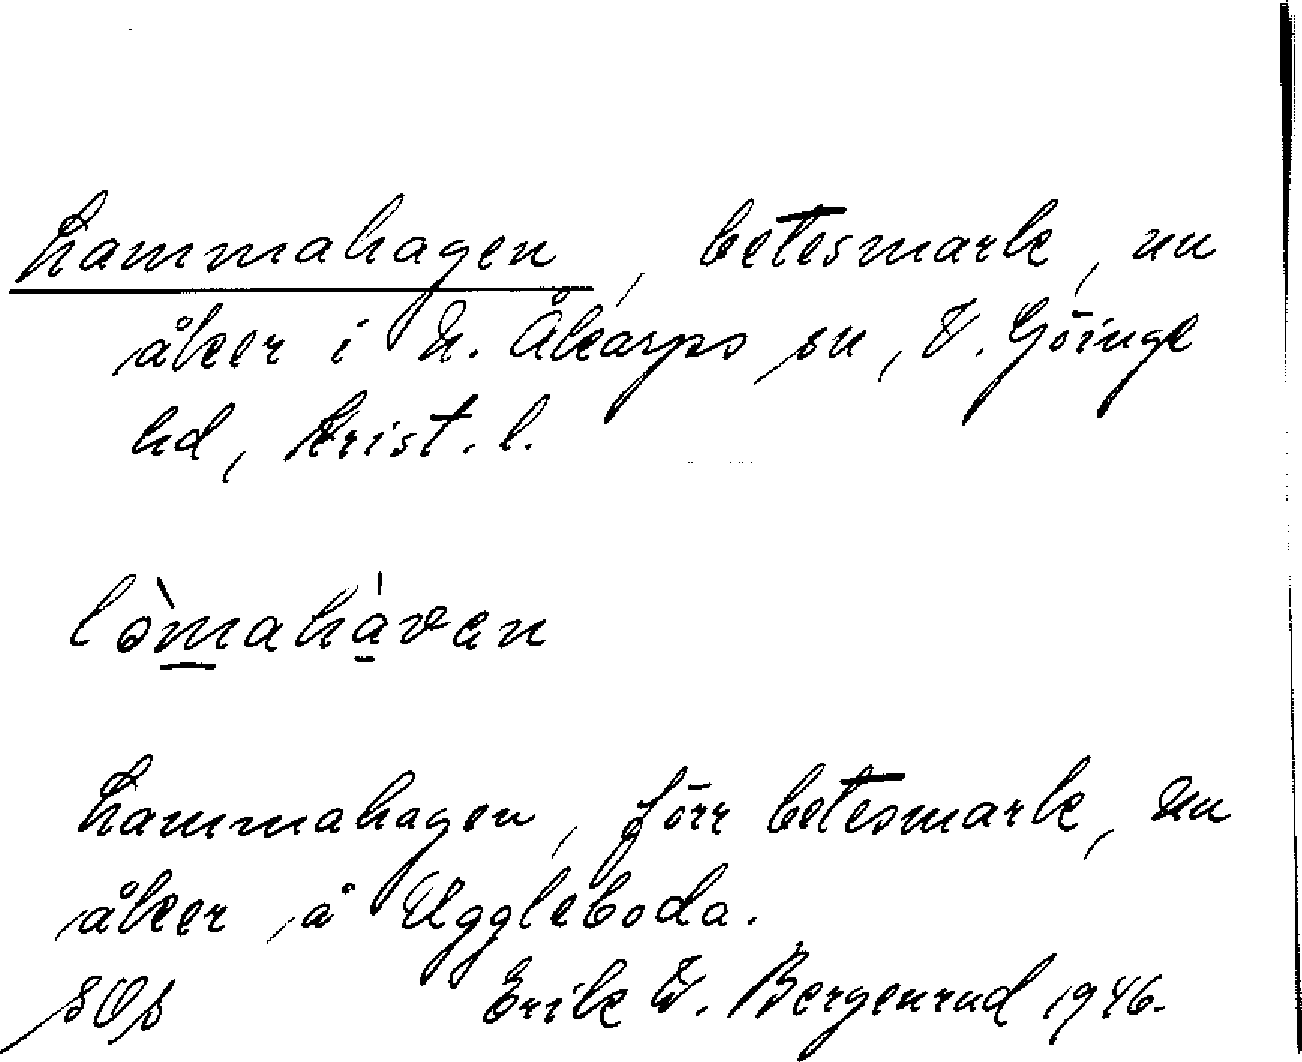 Lammahagen, betesmark, nu
åker i N. Åkarps sn, V. Göinge
hd, Krist. l.
lòmahàvan
Lammahagen, förr betesmark, nu
åker, å Uggleboda.
Erik W. Bergenrud 1946.